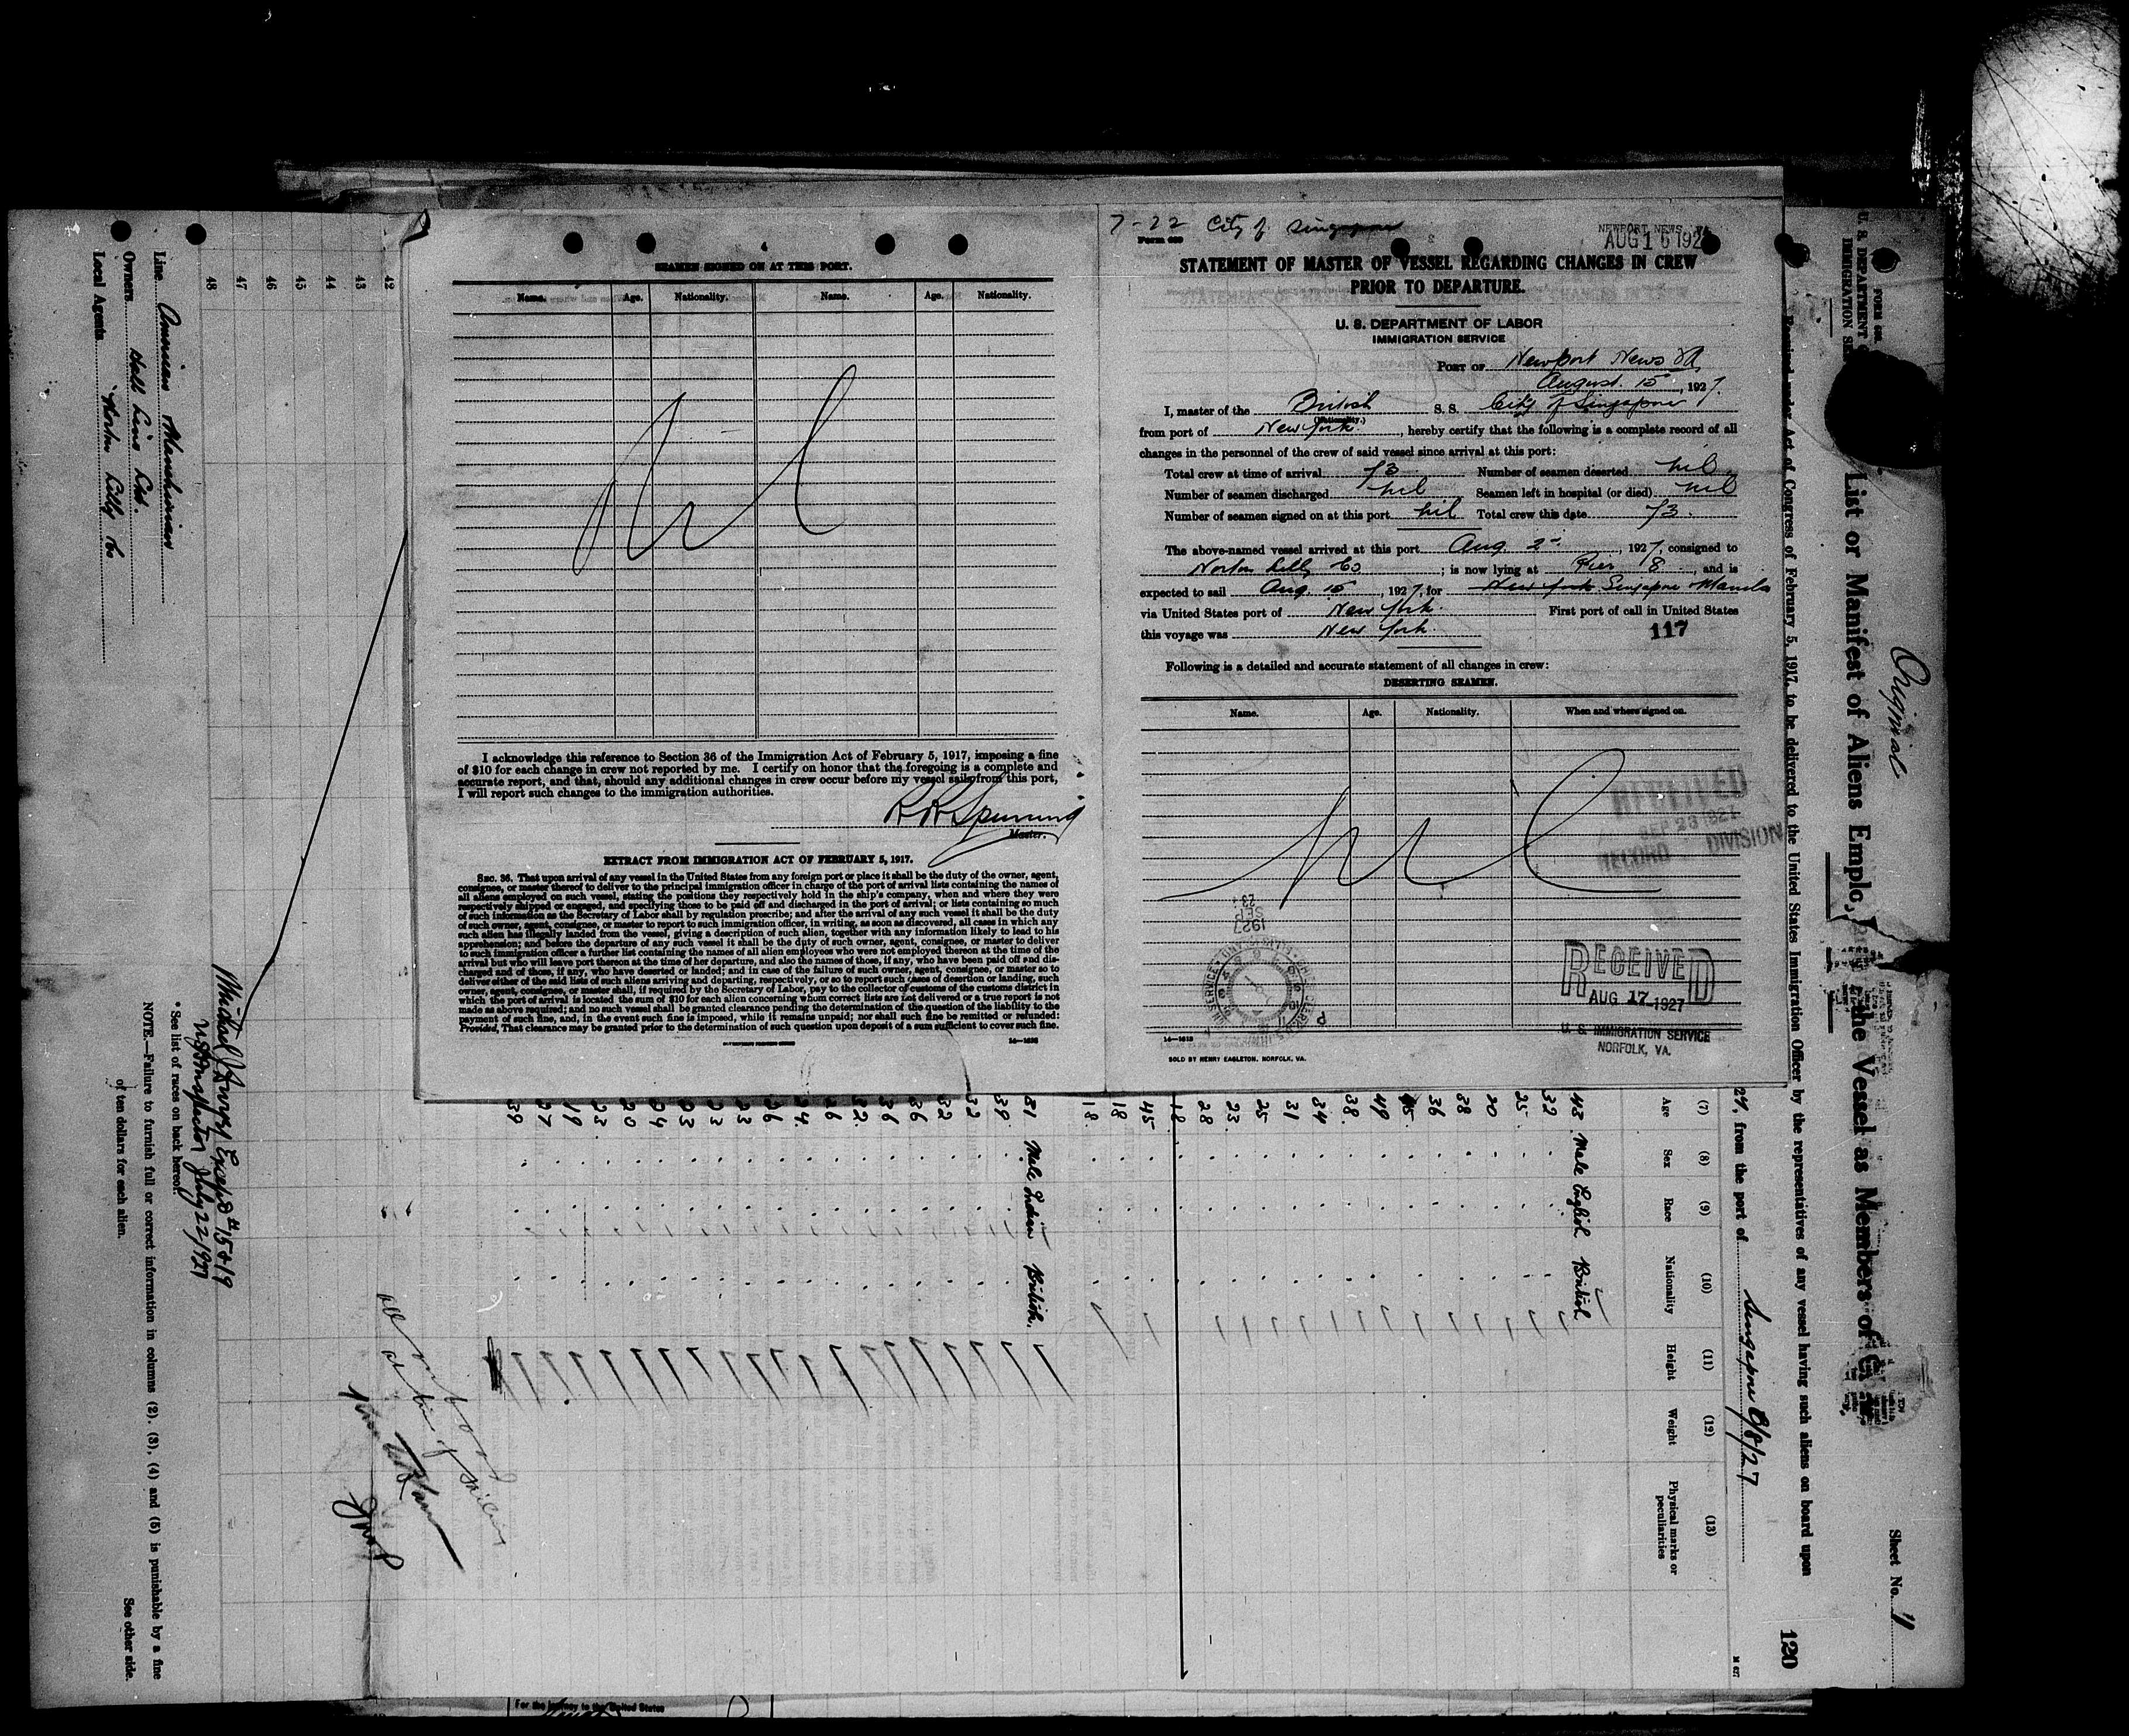 7-22 City of Singapore
Form 689
NEWPORT NEWS, VA.
AUG 15 192
STATEMENT OF MASTER OF VESSEL REGARDING CHANGES IN CREW
PRIOR TO DEPARTURE.
U. S. DEPARTMENT OF LABOR
IMMIGRATION SERVICE
PORT OF Newport News VA
August 15, 1927.
I, master of the British S. S. City of Singapore
(Nationality.)
from port of New York, hereby certify that the following is a complete record of all
changes in the personnel of the crew of said vessel since arrival at this port:
Total crew at time of arrival 73 Number of seamen deserted nil
Number of seamen discharged nil Seamen left in hospital (or died) nil
Number of seamen signed on at this port nil Total crew this date 73.
The above-named vessel arrived at this port Aug. 2-, 1927, consigned to
Norton Lilly Co; is now lying at Pier 8, and is
expected to sail Aug. 15, 1927, for New York Singapore Manila
via United States port of New York. First port of call in United States
this voyage was New York.
117
Following is a detailed and accurate statement of all changes in crew:
DESERTING SEAMEN.
Name. Age. Nationality. When and where signed on.
Nil
RECEIVED
SEP 23 1927
RECORD DIVISION
1927
SEP
23
RECEIVED
AUG 17 1927
U. S. IMMIGRATION SERVICE
NORFOLK, VA.
14—1613
SOLD BY HENRY EAGLETON, NORFOLK, VA.
4
SEAMEN SIGNED ON AT THIS PORT.
Name. Age. Nationality. Name. Age. Nationality.
Nil
I acknowledge this reference to Section 36 of the Immigration Act of February 5, 1917, imposing a fine
of $10 for each change in crew not reported by me. I certify on honor that the foregoing is a complete and
accurate report, and that, should any additional changes in crew occur before my vessel sails from this port,
I will report such changes to the immigration authorities.
Master.
EXTRACT FROM IMMIGRATION ACT OF FEBRUARY 5, 1917.
SEC. 36. That upon arrival of any vessel in the United States from any foreign port or place it shall be the duty of the owner, agent,
consignee, or master thereof to deliver to the principal immigration officer in charge of the port of arrival lists containing the names of
all aliens employed on such vessel, stating the positions they respectively hold in the ship's company, when and where they were
respectively shipped or engaged, and specifying those to be paid off and discharged in the port of arrival; or lists containing so much
of such information as the Secretary of Labor shall by regulation prescribe; and after the arrival of any such vessel it shall be the duty
of such owner, agent, consignee, or master to report to such immigration officer, in writing, as soon as discovered, all cases in which any
such alien has illegally landed from the vessel, giving a description of such alien, together with any information likely to lead to his
apprehension; and before the departure of any such vessel it shall be the duty of such owner, agent, consignee, or master to deliver
to such immigration officer a further list containing the names of all alien employees who were not employed thereon at the time of the
arrival but who will leave port thereon at the time of her departure, and also the names of those, if any, who have been paid off and dis-
charged and of those, if any, who have deserted or landed; and in case of the failure of such owner, agent, consignee, or master so to
deliver either of the said lists of such aliens arriving and departing, respectively, or so to report such cases of desertion or landing, such
owner, agent, consignee, or master shall, if required by the Secretary of Labor, pay to the collector of customs of the customs district in
which the port of arrival is located the sum of $10 for each alien concerning whom correct lists are not delivered or a true report is not
made as above required; and no such vessel shall be granted clearance pending the determination of the question of the liability to the
payment of such fine, and, in the event such fine is imposed, while it remains unpaid; nor shall such fine be remitted or refunded:
Provided, That clearance may be granted prior to the determination of such question upon deposit of a sum sufficient to cover such fine.
Original
Sheet No.
120
U. S. DEPARTMENT
IMMIGRATION SE
List or Manifest of Aliens Employ the Vessel as Members of
Required under Act of Congress of February 5, 1917, to be delivered to the United States Immigration Officer by the representatives of any vessel having such aliens on board upon
27, from the port of Singapore 8/8/27
(7) (8) (9) (10) (11) (12) (13)
Age Sex Race Nationality Height Weight Physical marks or
peculiarities
43 Male English British
32
25
20
38
36
45
49
38
34
31
25
23
28
18
45
18
18
31 Male Indian British.
39
32
32
36
36
32
26
24
26
23
23
23
24
20
23
19
27
39
42
43
44
45
46
47
48
Line American Manchurian
Owners Hall Line Ltd.
Local Agents Norton Lilly Co
Except #15 & 19
July 22/927
* See list of races on back hereof.
NOTE.—Failure to furnish full or correct information in columns (2), (3), (4) and (5) is punishable by a fine
of ten dollars for each alien.
See other side.
For the journey to the United States